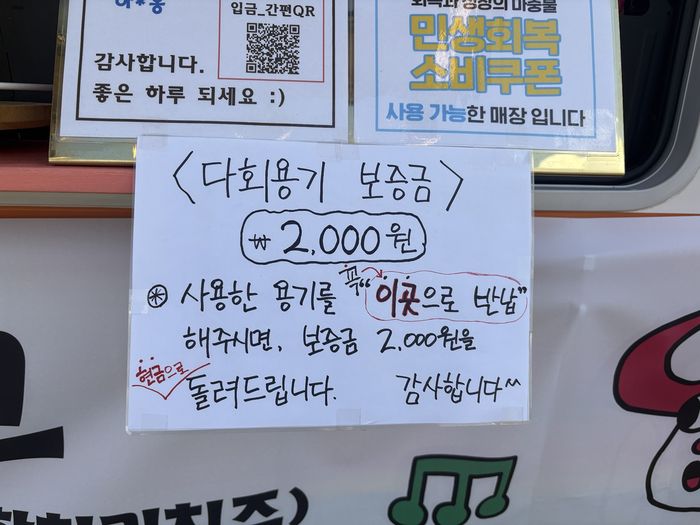 입금_간편QR
감사합니다.
좋은 하루 되세요 :)
민생회복
소비쿠폰
사용 가능한 매장 입니다
<다회용기 보증금>
₩ 2,000원
※ 사용한 용기를 꼭 "이곳으로 반납"
해주시면, 보증금 2,000원을
현금으로
돌려드립니다. 감사합니다^^